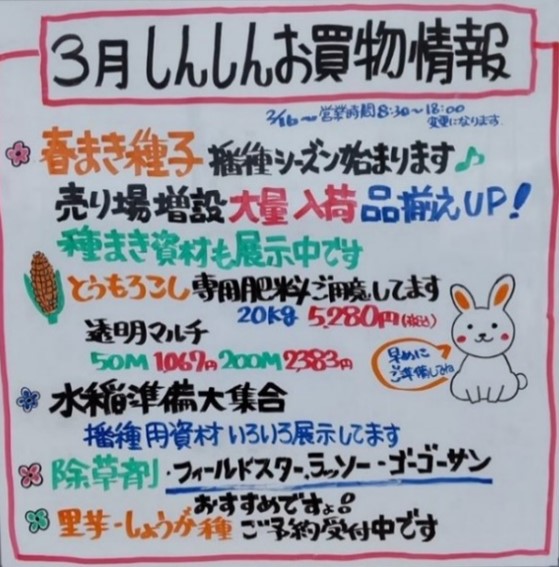 3月しんしんお買物情報
2/16〜営業時間8:30〜18:00
変更になります.
春まき種子 播種シーズン始まります♪
売り場増設 大量入荷 品揃えUP!
種まき資材も展示中です
とうもろこし専用肥料ご用意してます
20kg 5,280円(税込)
透明マルチ
50M 1,067円 200M 2,383円
早めに
ご準備してね
水稲準備大集合
播種用資材いろいろ展示してます
除草剤・フィールドスター、ラッソー・ゴーゴーサン
おすすめですよ!!
里芋・しょうが種 ご予約受付中です